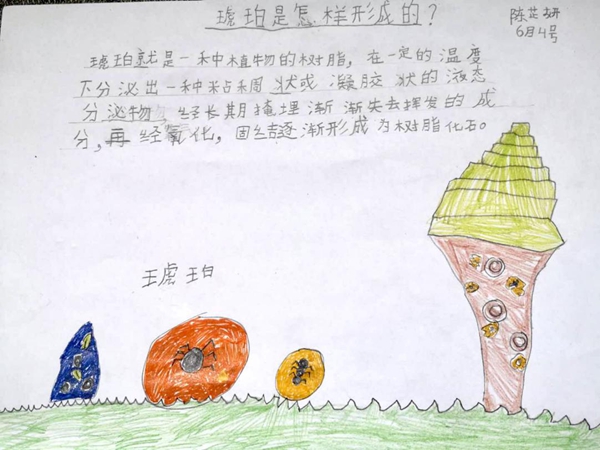 琥珀是怎样形成的？
陈芷妍
6月4号
琥珀就是一种植物的树脂，在一定的温度
下分泌出一种粘稠状或凝胶状的液态
分泌物，经长期掩埋渐渐失去挥发的成
分，再经氧化，固结逐渐形成为树脂化石。
琥珀